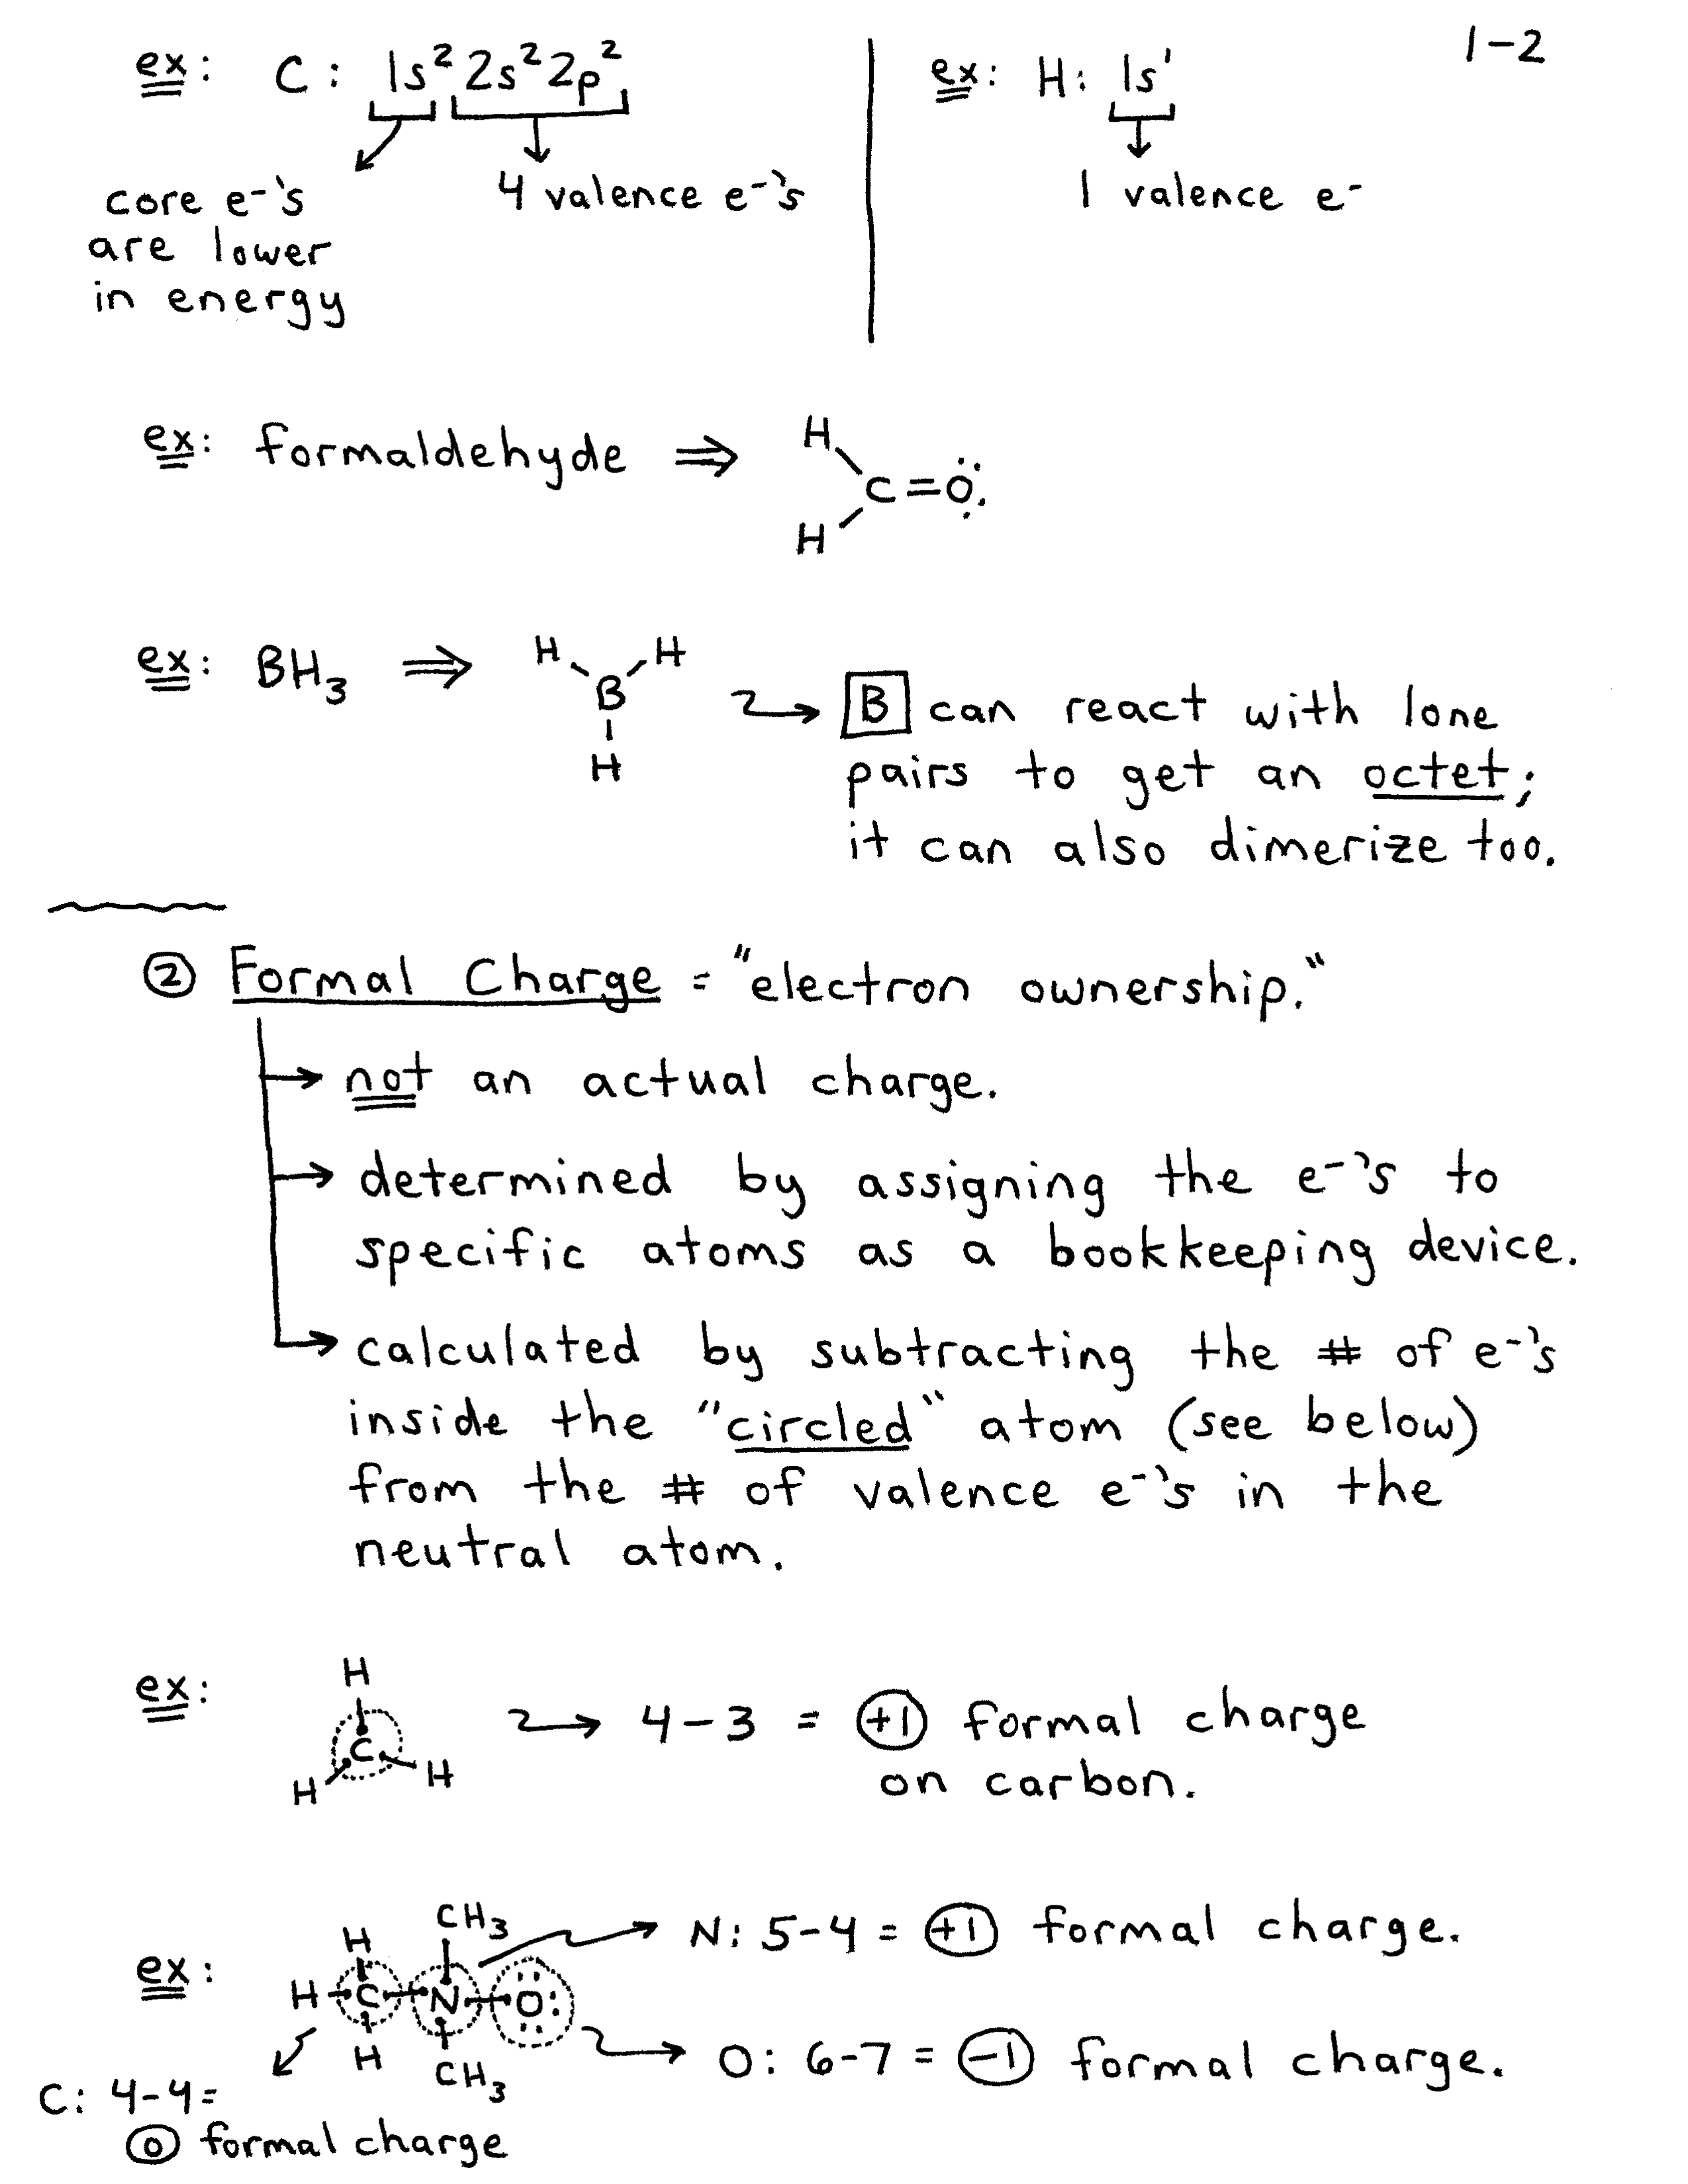 1-2
ex: C: 1s² 2s² 2p²
core e⁻'s
are lower
in energy
4 valence e⁻'s
ex: H: 1s¹
1 valence e⁻
ex: formaldehyde ⇒
H
C=Ö:
H
ex: BH₃ ⇒
H H
B
H
B can react with lone
pairs to get an octet;
it can also dimerize too.
② Formal Charge = "electron ownership."
→ not an actual charge.
→ determined by assigning the e⁻'s to
specific atoms as a bookkeeping device.
→ calculated by subtracting the # of e⁻'s
inside the "circled" atom (see below)
from the # of valence e⁻'s in the
neutral atom.
ex:
H
C
H H
→ 4-3 = +1 formal charge
on carbon.
ex:
H CH₃
H-C-N-O:
H CH₃
→ N: 5-4 = +1 formal charge.
→ O: 6-7 = -1 formal charge.
C: 4-4=
0 formal charge